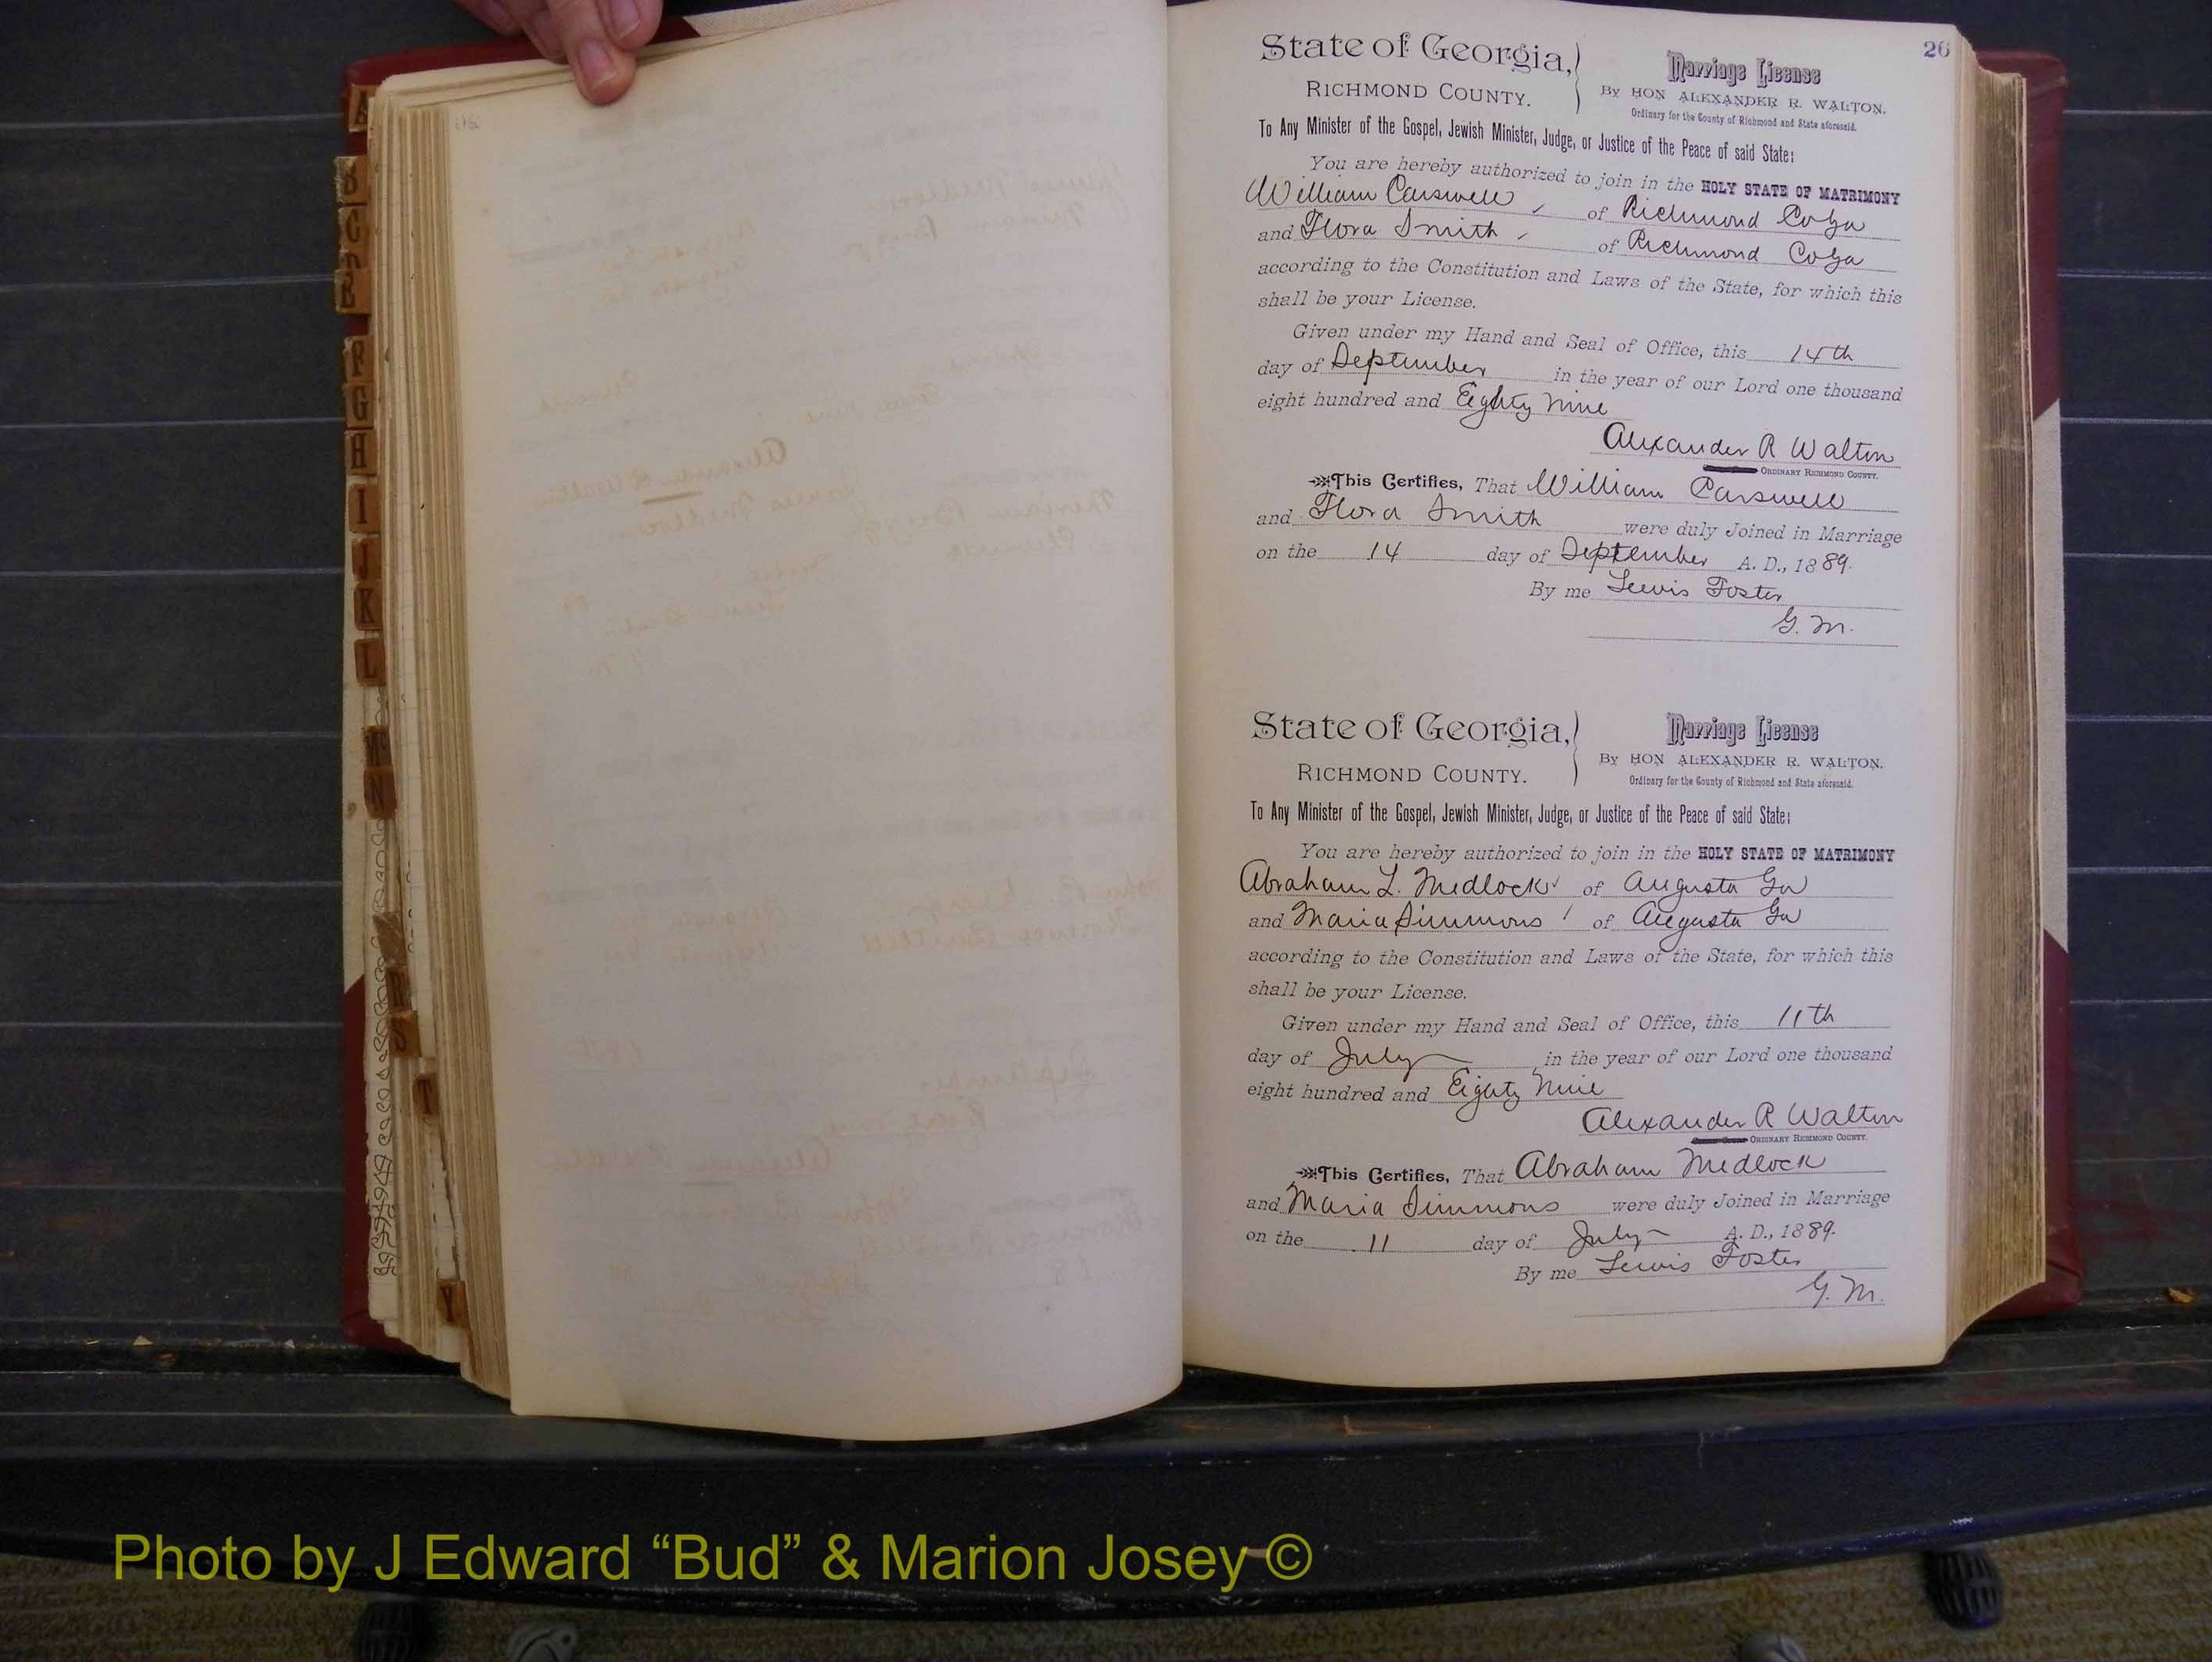 26
State of Georgia,
RICHMOND COUNTY.
Marriage License
By HON ALEXANDER R. WALTON.
Ordinary for the County of Richmond and State aforesaid.
To Any Minister of the Gospel, Jewish Minister, Judge, or Justice of the Peace of said State:
You are hereby authorized to join in the HOLY STATE OF MATRIMONY
William Carswell, of Richmond Co Ga
and Flora Smith, of Richmond Co Ga
according to the Constitution and Laws of the State, for which this
shall be your License.
Given under my Hand and Seal of Office, this 14th
day of September in the year of our Lord one thousand
eight hundred and Eighty Nine
Alexander R Walton
ORDINARY RICHMOND COUNTY.
This Certifies, That William Carswell
and Flora Smith were duly Joined in Marriage
on the 14 day of September A. D., 1889.
By me Lewis Foster
G. M.
State of Georgia,
RICHMOND COUNTY.
Marriage License
By HON ALEXANDER R. WALTON.
Ordinary for the County of Richmond and State aforesaid.
To Any Minister of the Gospel, Jewish Minister, Judge, or Justice of the Peace of said State:
You are hereby authorized to join in the HOLY STATE OF MATRIMONY
Abraham L. Medlock of Augusta Ga
and Maria Simmons of Augusta Ga
according to the Constitution and Laws of the State, for which this
shall be your License.
Given under my Hand and Seal of Office, this 11th
day of July in the year of our Lord one thousand
eight hundred and Eighty Nine
Alexander R Walton
ORDINARY RICHMOND COUNTY.
This Certifies, That Abraham Medlock
and Maria Simmons were duly Joined in Marriage
on the 11 day of July A. D., 1889.
By me Lewis Foster
G. M.
A
B
C
F
G
H
I
J
K
L
N
S
T
Y
Photo by J Edward “Bud” & Marion Josey ©